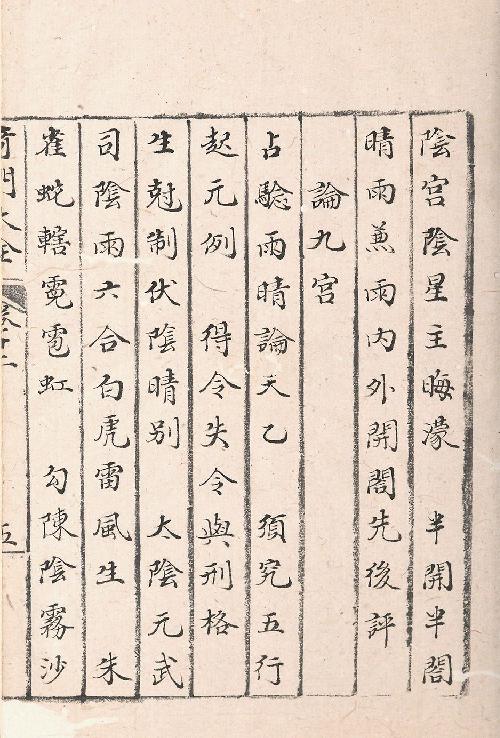 陰宮陰星主晦濛　半開半閤
晴雨兼雨内外開閤先後評
論九宮
占驗雨晴論天乙　須究五行
起元例　得令失令與刑格
生尅制伏陰晴别　太陰元武
司陰雨六合白虎雷風生　朱
雀蛇轄霓雹虹　勾陳陰霧沙
奇門大全　卷十二　五